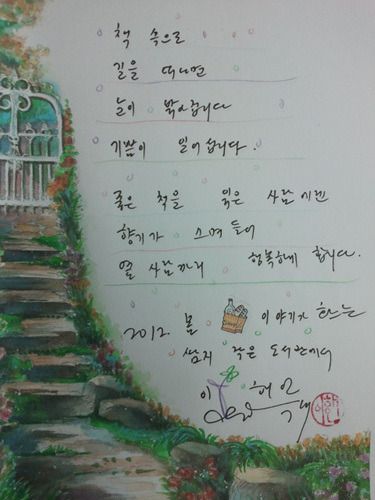 책 속으로
길을 떠나면
눈이 밝아집니다
기쁨이 일어섭니다.
좋은 책을 읽은 사람이면
향기가 스며들어
옆 사람까지 행복하게 합니다.
2012 봄 이야기가 하는
쌈지 작은 도서관에서
이 해인